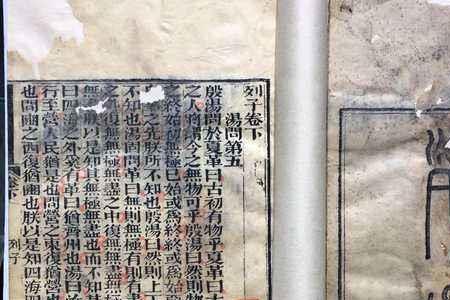 列子卷下
湯問第五
殷湯問於夏革曰古初有物乎夏革曰古
之人將謂今之無物可乎殷湯曰然則物
之終始初無極已始或為終終或為始
之先朕所不知也殷湯曰然則上
不知也湯固問革曰無則無極有則有
之復無無極無盡之中復無無盡無
無朕以是知其無極無盡也而不知其
曰四海之外奚有革曰猶齊州也湯曰
行至營人民猶是也問營之東復猶營
也問豳之西復猶豳也朕以是知四海四
卷下
列子